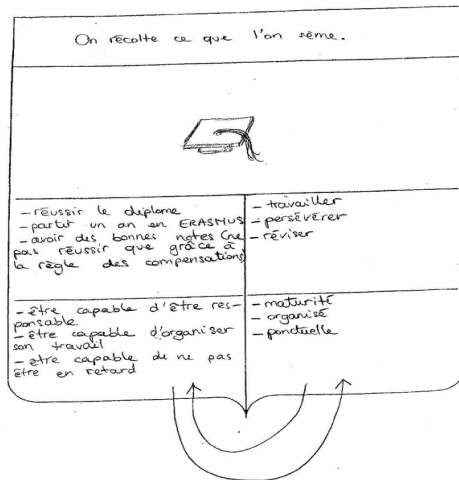 On récolte ce que l'on sème.
- réussir le diplome
- partir un an en ERASMUS
- avoir des bonnes notes (ne
pas réussir que grâce à
la règle des compensations)
- travailler
- persévérer
- réviser
- être capable d'être res-
ponsable
- être capable d'organiser
son travail
- être capable de ne pas
être en retard
- maturité
- organisé
- ponctuelle